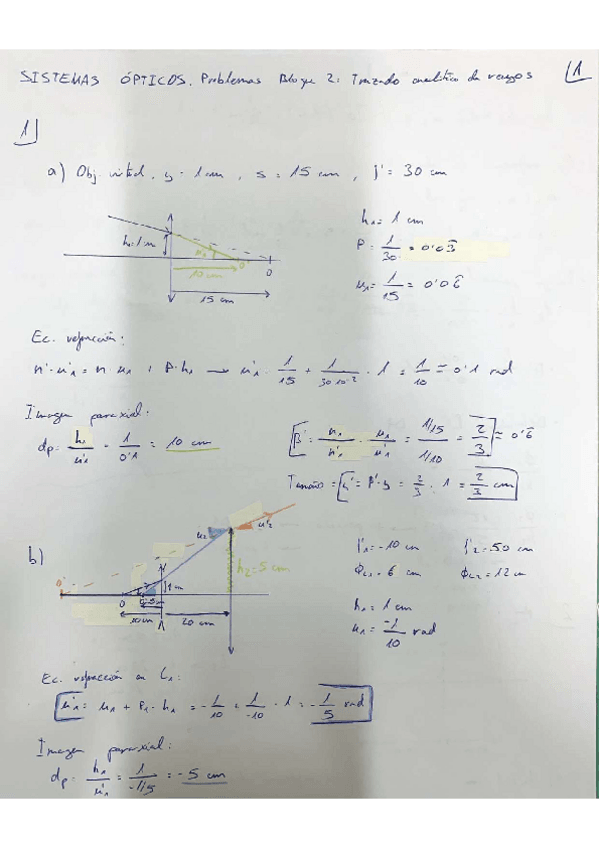 SISTEMAS ÓPTICOS. Problemas Bloque 2: Trazado analítico de rayos
1
1
a) Obj. virtual, y = 1 cm, s = 15 cm, f' = 30 cm
h₁ = 1 cm
P = 1/30 = 0'03̂
u₁ = 1/15 = 0'06̂
h₁ = 1 cm
u'₁
10 cm
O'
O
15 cm
Ec. refracción:
n'·u'₁ = n u₁ + P·h₁ → u'₁ = 1/15 + 1/30·10⁻² · 1 = 1/10 = 0'1 rad
Imagen paraxial:
dp = h₁/u'₁ = 1/0'1 = 10 cm
β' = n₁/n'₁ · u₁/u'₁ = (1/15)/(1/10) = 2/3 = 0'6̂
Tamaño = y' = β'·y = 2/3 · 1 = 2/3 cm
b)
u₂
u'₂
h₂ = 5 cm
1 cm
O
10 cm
20 cm
f'₁ = -10 cm
f'₂ = 50 cm
ϕL₁ = 6 cm
ϕL₂ = 12 cm
h₁ = 1 cm
u₁ = -1/10 rad
Ec. refracción en L₁:
u'₁ = u₁ + P₁·h₁ = -1/10 + 1/-10 · 1 = -1/5 rad
Imagen paraxial:
dp = h₁/u'₁ = 1/-1/5 = -5 cm